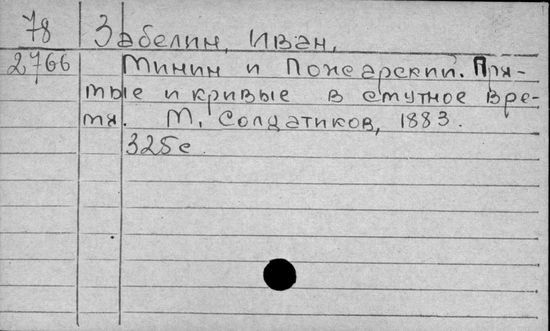 78 Забелин, Иван,
2766 Минин и Пожарский. Пря-
мые и кривые в смутное вре-
мя. М, Солдатиков, 1883.
325с.